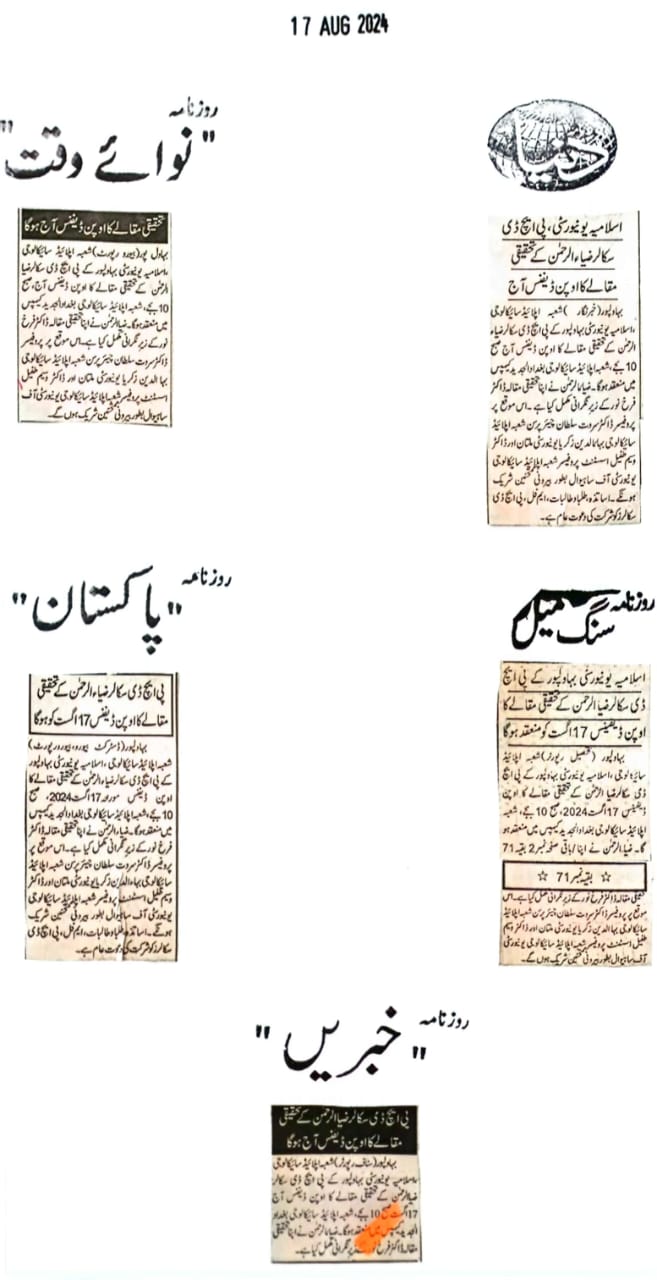 17 AUG 2024
روزنامہ
"نوائے وقت"
تحقیقی مقالے کا اوپن ڈیفنس آج ہوگا
بہاول پور (بیورو رپورٹ) شعبہ اپلائیڈ سائیکالوجی
،اسلامیہ یونیورسٹی بہاولپور کے پی ایچ ڈی سکالر ضیا
الرحمٰن کے تحقیقی مقالے کا اوپن ڈیفنس آج، صبح
10 بجے، شعبہ اپلائیڈ سائیکالوجی بغداد الجدید کیمپس
میں منعقد ہوگا۔ ضیا الرحمٰن نے اپنا تحقیقی مقالہ ڈاکٹر فرخ
نور کے زیر نگرانی مکمل کیا ہے۔ اس موقع پر پروفیسر
ڈاکٹر سروت سلطان چیئر پرسن شعبہ اپلائیڈ سائیکالوجی
بہا الدین زکریا یونیورسٹی ملتان اور ڈاکٹر وسیم طفیل
اسسٹنٹ پروفیسر شعبہ اپلائیڈ سائیکالوجی یونیورسٹی آف
ساہیوال بطور بیرونی ممتحن شریک ہوں گے۔
دنیا
اسلامیہ یونیورسٹی، پی ایچ ڈی
سکالر ضیاء الرحمٰن کے تحقیقی
مقالے کا اوپن ڈیفنس آج
بہاولپور (خبرنگار) شعبہ اپلائیڈ سائیکالوجی
،اسلامیہ یونیورسٹی بہاولپور کے پی ایچ ڈی سکالر ضیاء
الرحمٰن کے تحقیقی مقالے کا اوپن ڈیفنس آج صبح
10 بجے، شعبہ اپلائیڈ سائیکالوجی بغداد الجدید کیمپس
میں منعقد ہوگا۔ ضیاء الرحمٰن نے اپنا تحقیقی مقالہ ڈاکٹر
فرخ نور کے زیر نگرانی مکمل کیا ہے۔ اس موقع پر
پروفیسر ڈاکٹر سروت سلطان چیئر پرسن شعبہ اپلائیڈ
سائیکالوجی بہاء الدین زکریا یونیورسٹی ملتان اور ڈاکٹر
وسیم طفیل اسسٹنٹ پروفیسر شعبہ اپلائیڈ سائیکالوجی
یونیورسٹی آف ساہیوال بطور بیرونی ممتحن شریک
ہونگے۔ اساتذہ، طلبا و طالبات، ایم فل، پی ایچ ڈی
سکالرز کو شرکت کی دعوت عام ہے۔
روزنامہ
"پاکستان"
پی ایچ ڈی سکالر ضیاء الرحمٰن کے تحقیقی
مقالے کا اوپن ڈیفنس 17 اگست کو ہوگا
بہاولپور (ڈسٹرکٹ بیورو، بیورو رپورٹ)
شعبہ اپلائیڈ سائیکالوجی ،اسلامیہ یونیورسٹی بہاولپور
کے پی ایچ ڈی سکالر ضیاء الرحمٰن کے تحقیقی مقالے کا
اوپن ڈیفنس مورخہ 17 اگست 2024، صبح
10 بجے، شعبہ اپلائیڈ سائیکالوجی بغداد الجدید کیمپس
میں منعقد ہوگا۔ ضیاء الرحمٰن نے اپنا تحقیقی مقالہ ڈاکٹر
فرخ نور کے زیر نگرانی مکمل کیا ہے۔ اس موقع پر
پروفیسر ڈاکٹر سروت سلطان چیئر پرسن شعبہ اپلائیڈ
سائیکالوجی بہاء الدین زکریا یونیورسٹی ملتان اور ڈاکٹر
وسیم طفیل اسسٹنٹ پروفیسر شعبہ اپلائیڈ سائیکالوجی
یونیورسٹی آف ساہیوال بطور بیرونی ممتحن شریک
ہونگے۔ اساتذہ، طلبا و طالبات، ایم فل، پی ایچ ڈی
سکالرز کو شرکت کی دعوت عام ہے۔
روزنامہ
سنگ میل
اسلامیہ یونیورسٹی بہاولپور کے پی ایچ
ڈی سکالر ضیا الرحمن کے تحقیقی مقالے کا
اوپن ڈیفینس 17 اگست کو منعقد ہوگا
بہاولپور (تحصیل رپورٹر) شعبہ اپلائیڈ
سائیکالوجی، اسلامیہ یونیورسٹی بہاولپور کے پی ایچ
ڈی سکالر ضیا الرحمن کے تحقیقی مقالے کا اوپن
ڈیفینس 17 اگست 2024، صبح 10 بجے، شعبہ
اپلائیڈ سائیکالوجی بغداد الجدید کیمپس میں منعقد ہو
گا۔ ضیا الرحمن نے اپنا (باقی صفحہ نمبر 2 بقیہ 71
☆ بقیہ نمبر 71 ☆
تحقیقی مقالہ ڈاکٹر فرخ نور کے زیر نگرانی مکمل کیا ہے۔ اس
موقع پر پروفیسر ڈاکٹر سروت سلطان چیئر پرسن شعبہ اپلائیڈ
سائیکالوجی بہا الدین زکریا یونیورسٹی ملتان اور ڈاکٹر وسیم
طفیل اسسٹنٹ پروفیسر شعبہ اپلائیڈ سائیکالوجی یونیورسٹی
آف ساہیوال بطور بیرونی ممتحن شریک ہوں گے۔
روزنامہ
"خبریں"
پی ایچ ڈی سکالر ضیا الرحمن کے تحقیقی
مقالے کا اوپن ڈیفنس آج ہوگا
بہاولپور (سٹاف رپورٹر) شعبہ اپلائیڈ سائیکالوجی
،اسلامیہ یونیورسٹی بہاولپور کے پی ایچ ڈی سکالر
ضیا الرحمن کے تحقیقی مقالے کا اوپن ڈیفنس آج
17 اگست صبح 10 بجے، شعبہ اپلائیڈ سائیکالوجی بغداد
الجدید کیمپس میں منعقد ہوگا۔ ضیا الرحمن نے اپنا تحقیقی
مقالہ ڈاکٹر فرخ نور کے زیر نگرانی مکمل کیا ہے۔